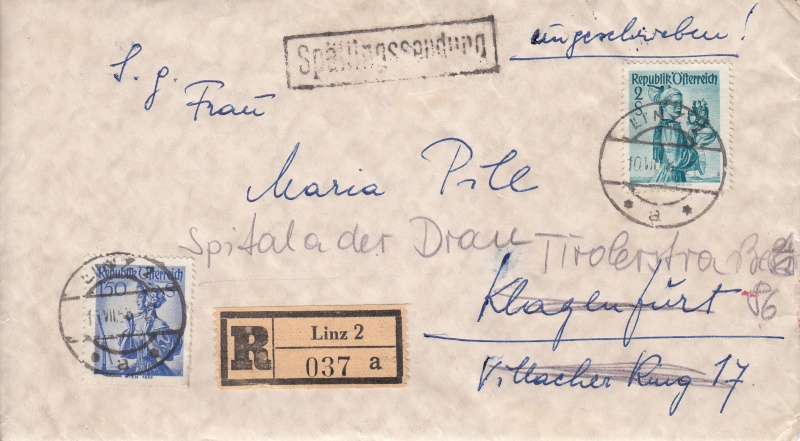 Spätlingssendung
eingeschrieben!
S. g.
Frau
Republik Österreich
2
S
LINZ
10.VII.
a
Maria Pill
Spital a der Drau Tirolerstraße
Klagenfurt
Villacher Ring 17
LINZ 2
Republik Österreich
1 50
S
VII.
a
R
Linz 2
037 a